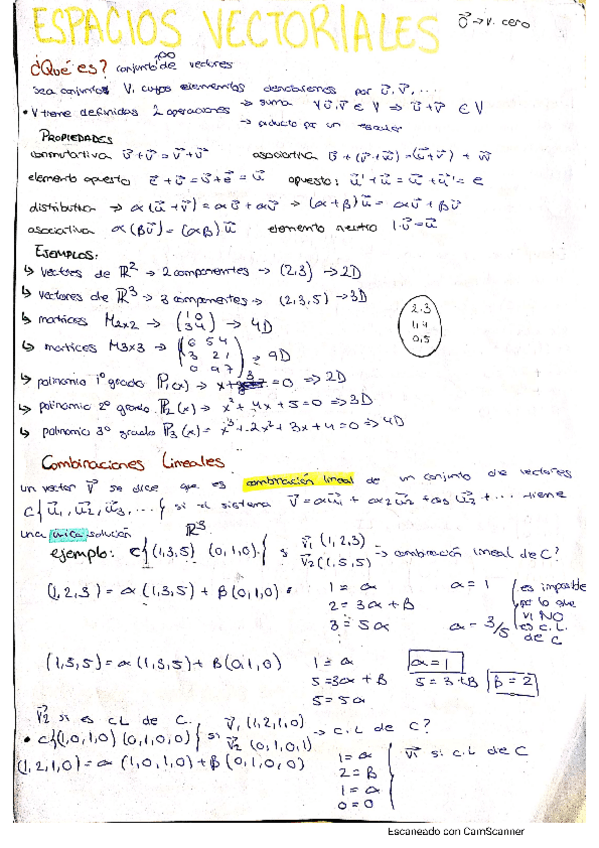 ESPACIOS VECTORIALES
0⃗ → v. cero
¿Qué es? conjunto de vectores
Sea conjunto V, cuyos elementos denotaremos por u⃗, v⃗, ...
• V tiene definidas 2 operaciones → suma ∀ u⃗, v⃗ ∈ V ⇒ u⃗ + v⃗ ∈ V
→ producto por un escalar
PROPIEDADES
conmutativa u⃗ + v⃗ = v⃗ + u⃗ asociativa u⃗ + (v⃗ + w⃗) = (u⃗ + v⃗) + w⃗
elemento opuesto e⃗ + u⃗ = u⃗ + e⃗ = u⃗ opuesto: u⃗' + u⃗ = u⃗ + u⃗' = e
distributiva → α(u⃗ + v⃗) = αu⃗ + αv⃗ → (α + β)u⃗ = αu⃗ + βu⃗
asociativa α(βu⃗) = (αβ)u⃗ elemento neutro 1·u⃗ = u⃗
EJEMPLOS:
↳ vectores de ℝ² → 2 componentes → (2,3) → 2D
↳ vectores de ℝ³ → 3 componentes → (2,3,5) → 3D
↳ matrices M2x2 → (1 0
3 4) → 4D
2,3
1,4
0,5
↳ matrices M3x3 → (6 5 4
3 2 1
0 9 7) = 9D
↳ polinomio 1º grado P1(x) → x + 3 = 0 ⇒ 2D
↳ polinomio 2º grado P2(x) → x² + 4x + 5 = 0 ⇒ 3D
↳ polinomio 3º grado P3(x) = x³ + 2x² + 3x + 4 = 0 ⇒ 4D
Combinaciones Lineales
un vector v⃗ se dice que es combinación lineal de un conjunto de vectores
C{u⃗1, u⃗2, u⃗3, ...} si el sistema v⃗ = αu⃗1 + α2u⃗2 + α3u⃗2 + ... tiene
una única solución
ℝ³
ejemplo: C{(1,3,5) (0,1,0)} si v⃗1 (1,2,3)
v⃗2 (1,5,5) → combinación lineal de C?
(1,2,3) = α(1,3,5) + β(0,1,0) 1 = α α = 1 es imposible
2 = 3α + β por lo que
3 = 5α α = 3/5 v1 NO
es c.l.
de C
(1,5,5) = α(1,3,5) + β(0,1,0) 1 = α α = 1
5 = 3α + β 5 = 3 + β β = 2
5 = 5α
v⃗2 si es CL de C.
• C{(1,0,1,0) (0,1,0,0)} si v⃗1 (1,2,1,0)
v⃗2 (0,1,0,1) → c.l de C?
(1,2,1,0) = α(1,0,1,0) + β(0,1,0,0) 1 = α v⃗1 si c.l de C
2 = β
1 = α
0 = 0
Escaneado con CamScanner